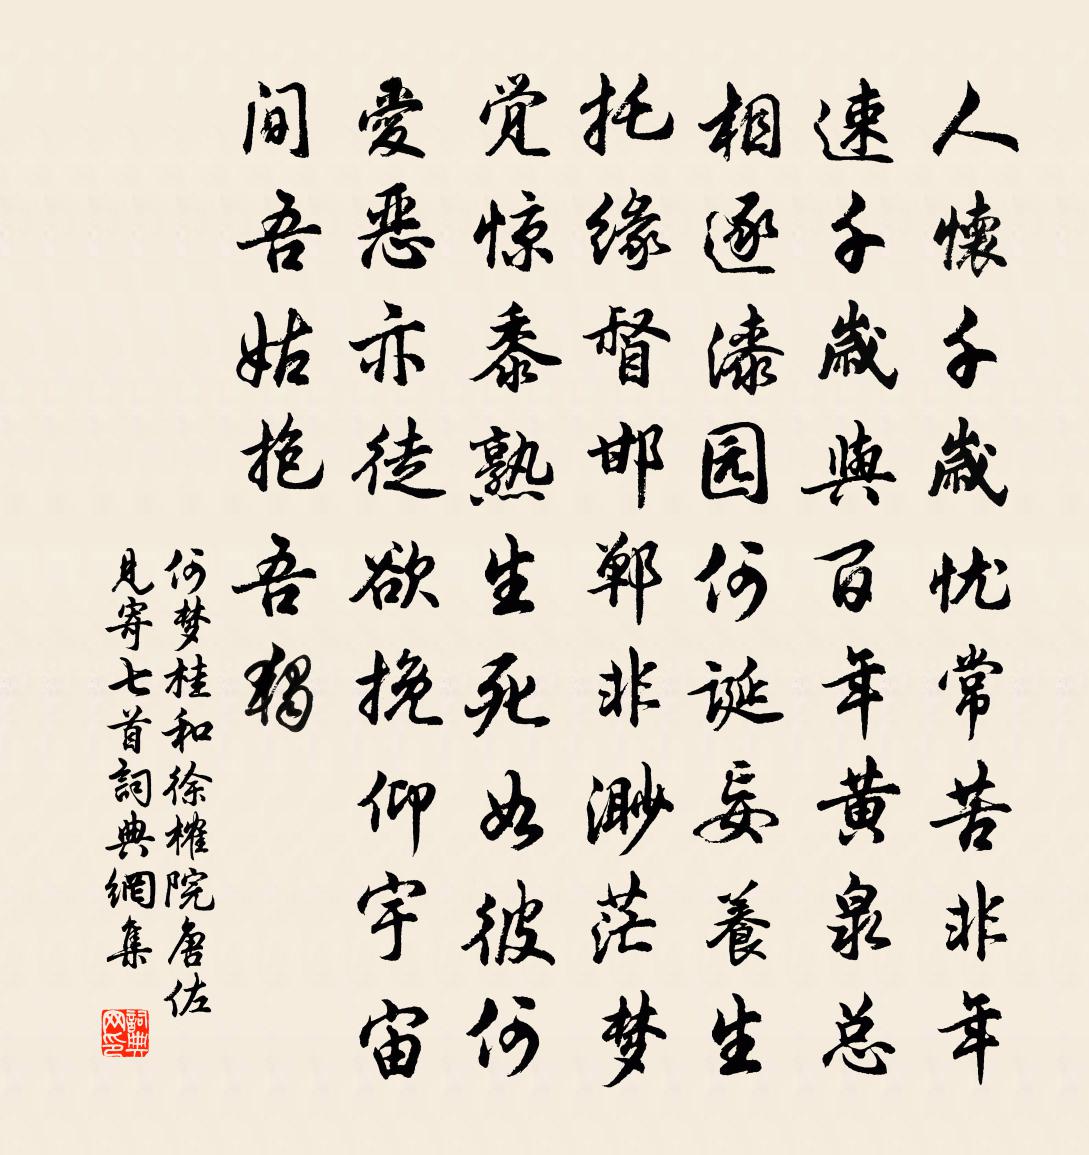 人懷千歲忧常苦非年
速千歲與百年黃泉总
相逐漆园何誕妄養生
托缘督邯郸非渺茫梦
觉惊黍熟生死如彼何
愛惡亦徒欲挽仰宇宙
间吾姑抱吾獨
何梦桂和徐榷院唐佐
見寄七首詞典網集
詞典网印